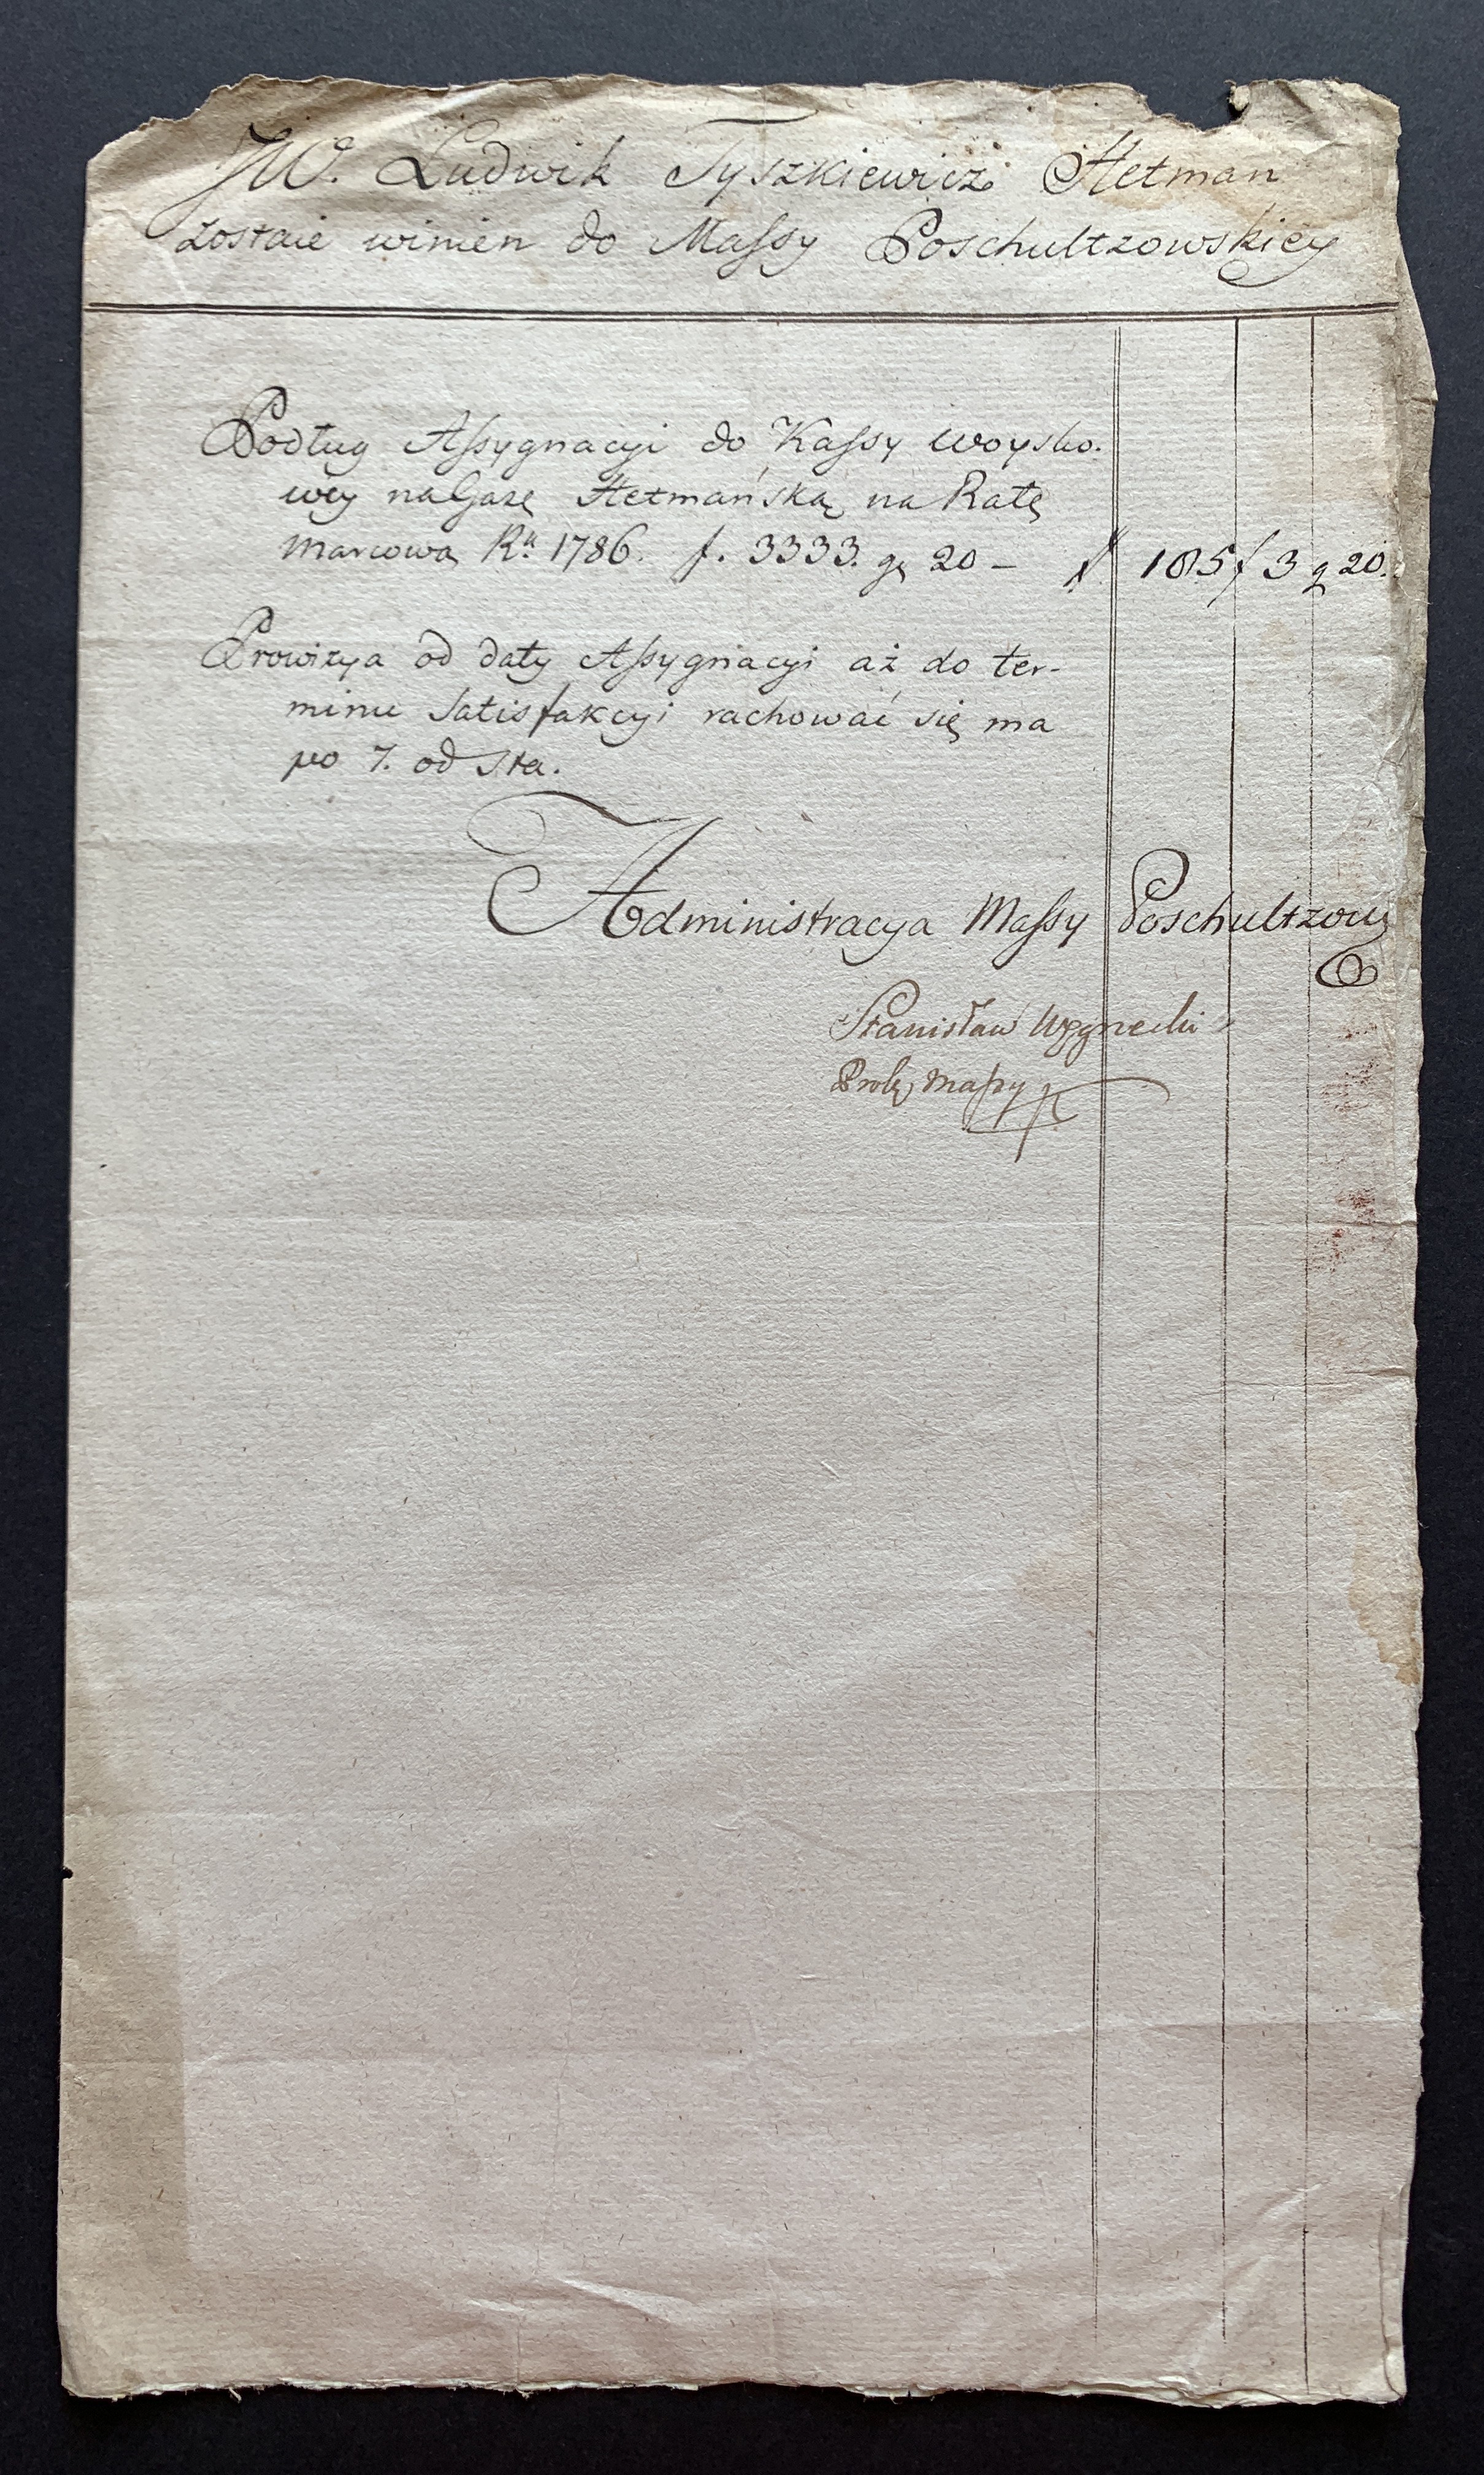 JW. Ludwik Tyszkiewicz Hetman
zostaie winien do Massy Poschultzowskiey
Podług Assygnacyi do Kassy Woysko-
wey na Gażę Hetmańską na Ratę
Marcową Ru 1786. f. 3333. gę 20 — # 185 f 3 g 20.
Prowizya od daty Assygnacyi aż do ter-
minu Satisfakcyi rachować się ma
po 7. od Sta.
Administracya Massy Poschultzow
Stanisław
Massy